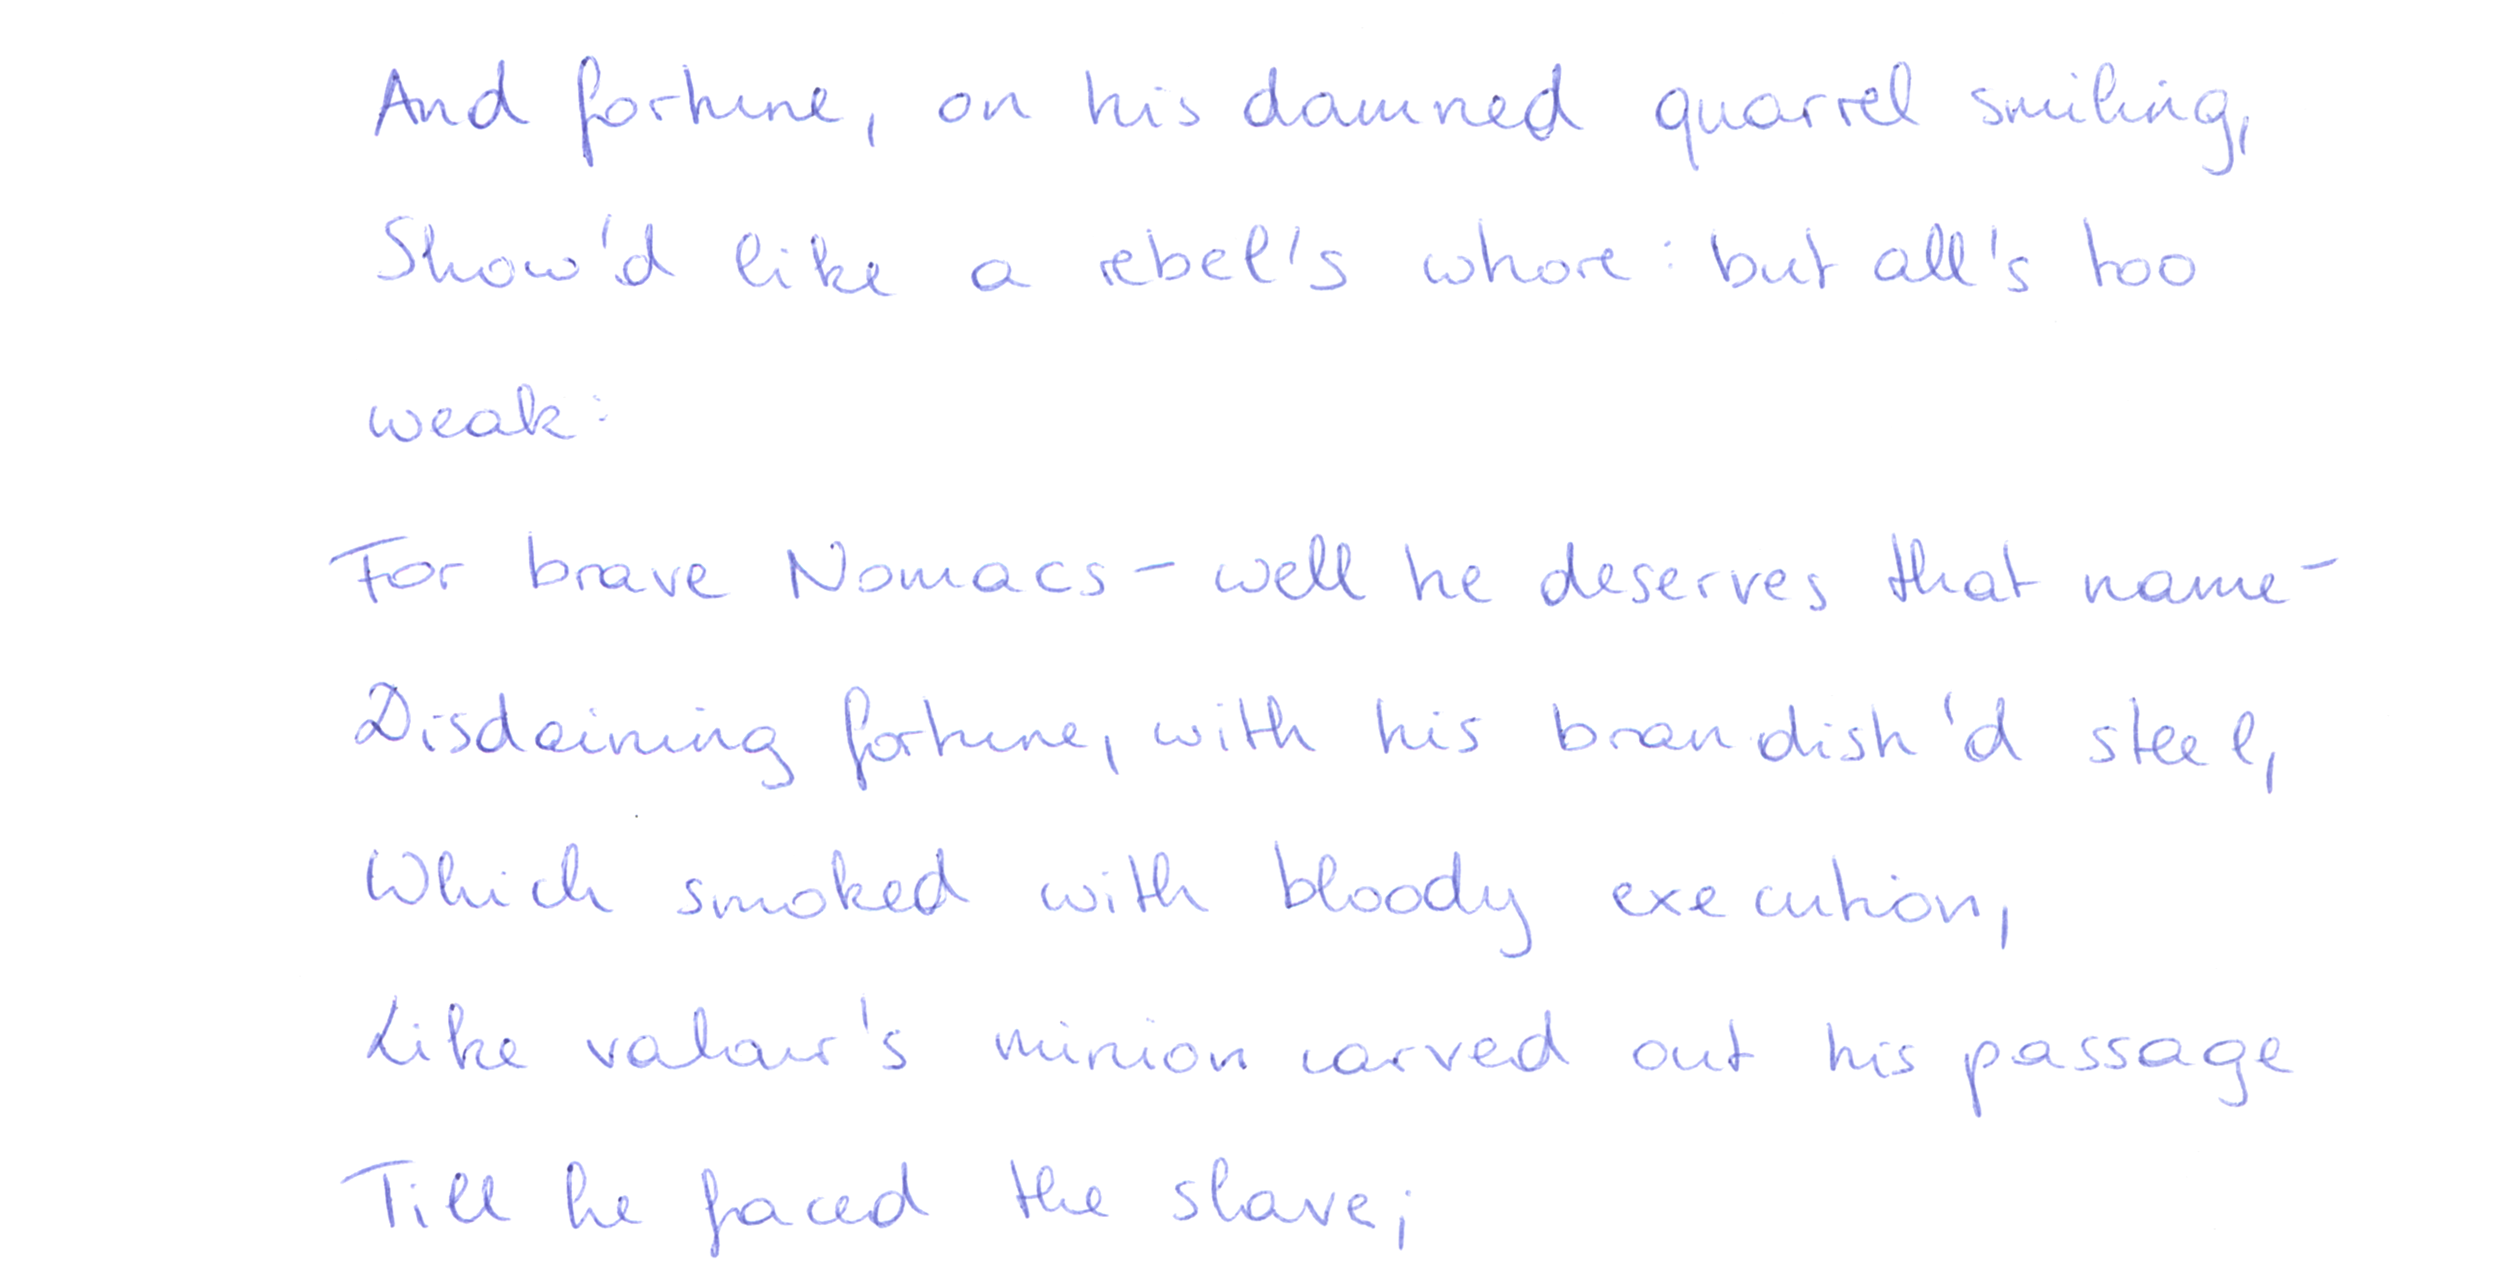 And fortune, on his damned quarrel smiling,
Show'd like a rebel's whore: but all's too
weak:
For brave Nomacs- well he deserves that name-
Disdaining fortune, with his brandish'd steel,
Which smoked with bloody execution,
Like valour's minion carved out his passage
Till he faced the slave;